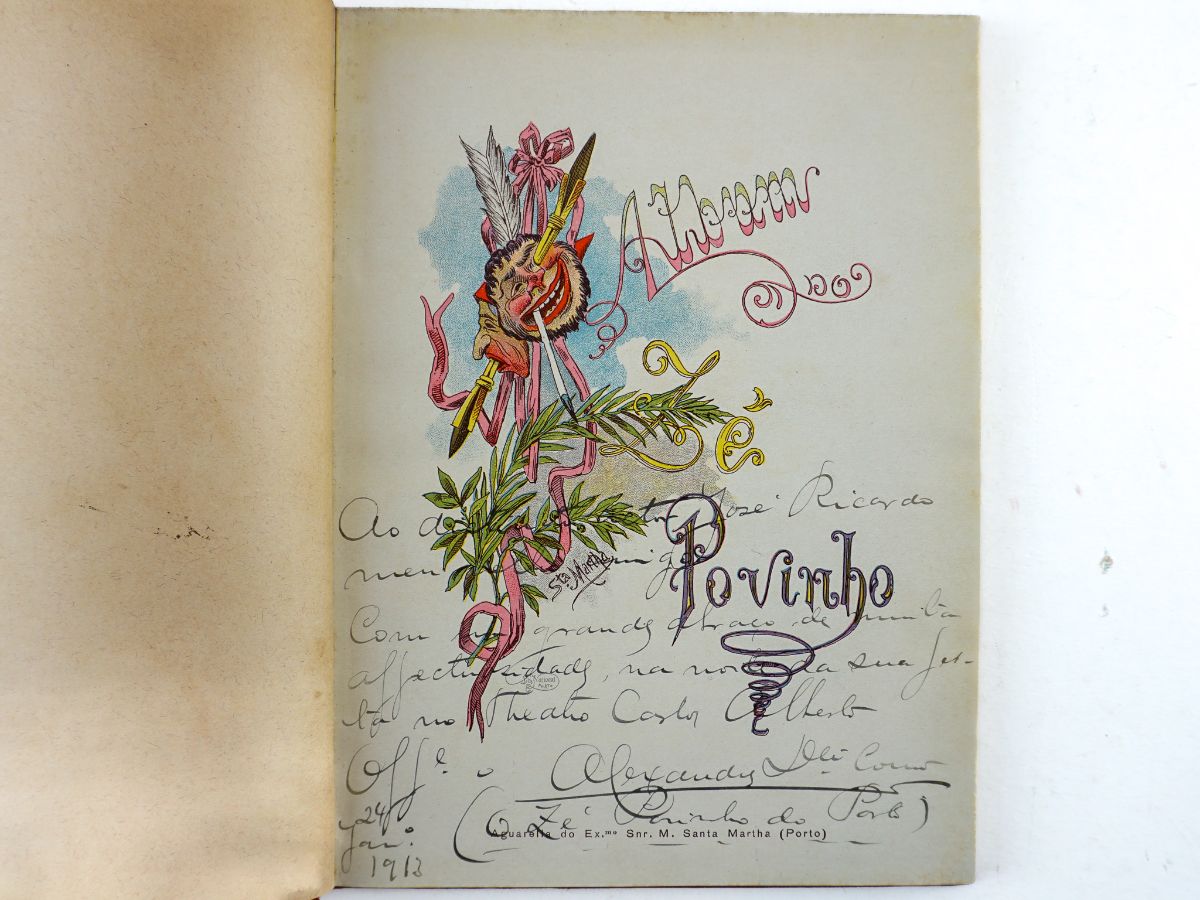 Album
do
Zé
Povinho
Sta Martha
Ao José Ricardo
meu amigo
Com um grande abraço de muita
affectuosidade, na noite da sua fes-
ta no Theatro Carlos Alberto
Off.e o Alexandre
(O Zé Povinho do Porto)
24
Jan.o
1913
Aguarella do Ex.mo Snr. M. Santa Martha (Porto)